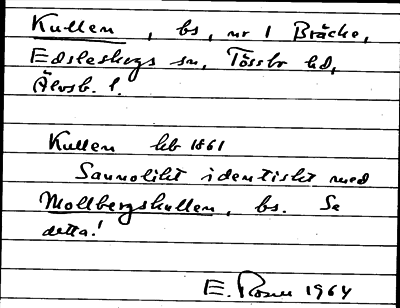 Kullen, bs, nr 1 Bräcke,
Edsleskogs sn, Tössbo hd,
Älvsb. l.
Kullen hb 1861
Sannolikt identiskt med
Mollbergskullen, bs. Se
detta!
E. Rosen 1964